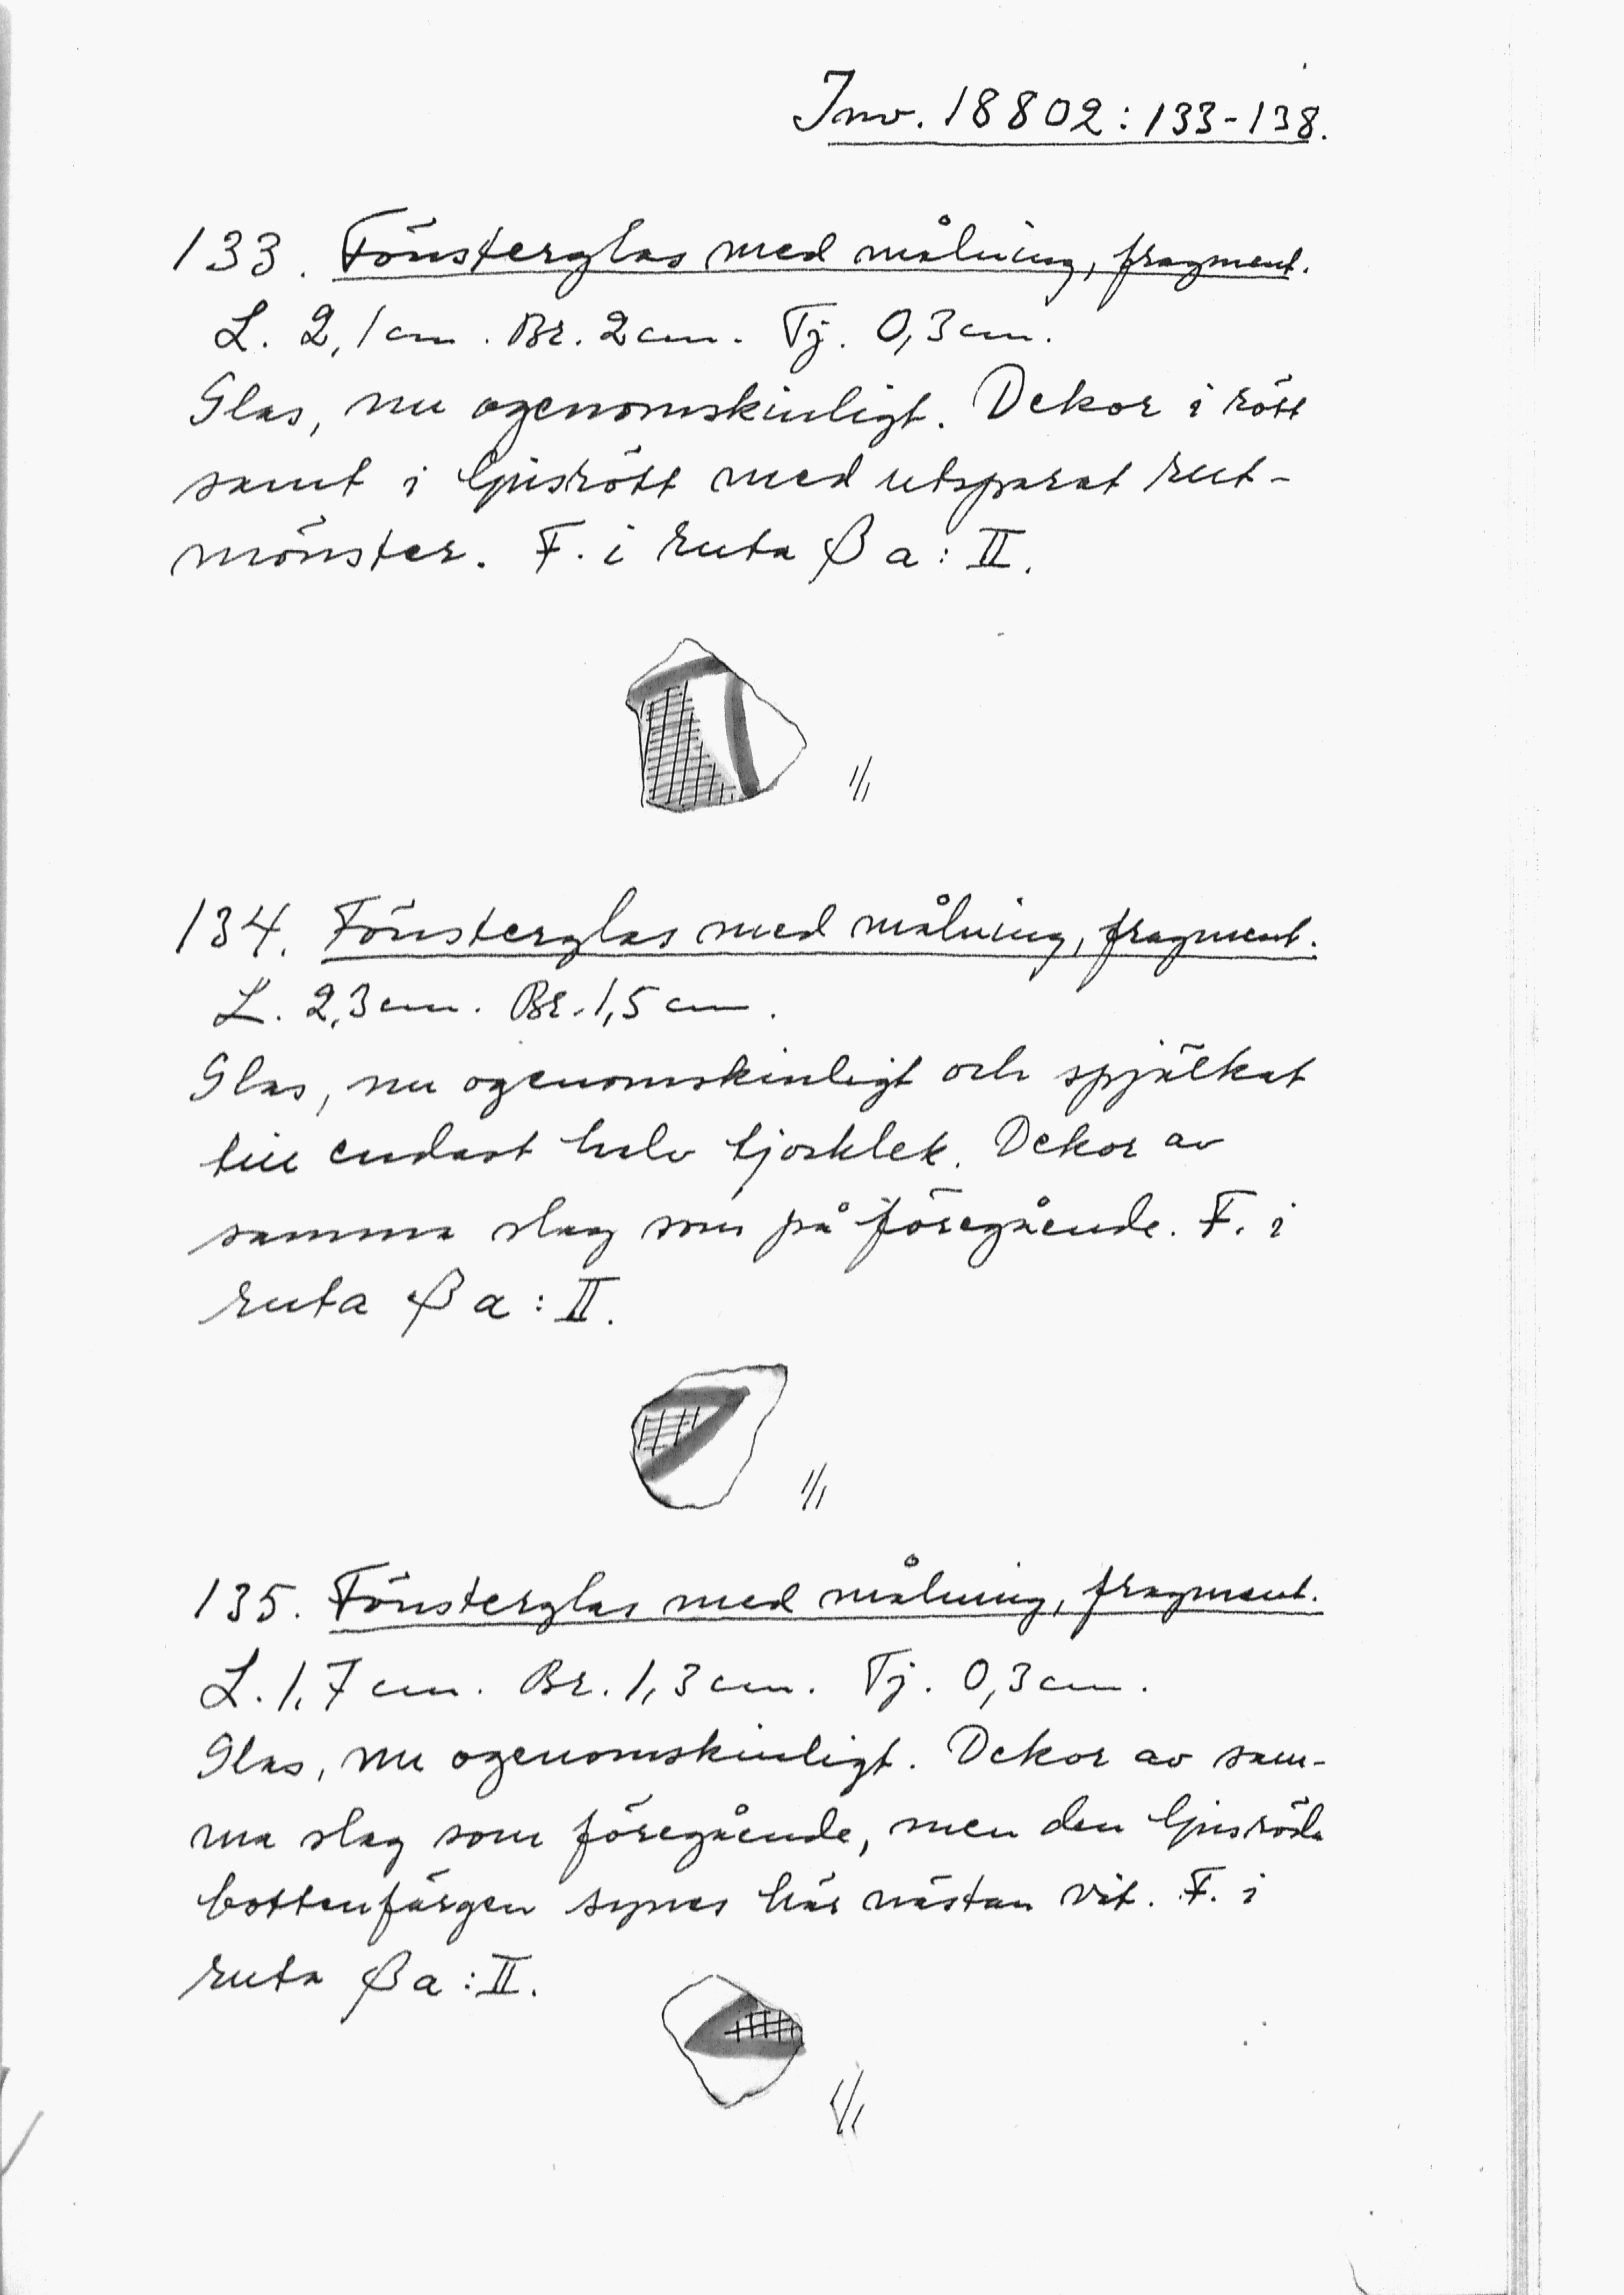 Inv. 18802:133-138.
133. Fönsterglas med målning, fragment.
L. 2,1 cm. Br. 2 cm. Tj. 0,3 cm.
Glas, nu ogenomskinligt. Dekor i rött
samt i ljusrött med utsparat rut-
mönster. F. i ruta β a: II.
1/1
134. Fönsterglas med målning, fragment.
L. 2,3 cm. Br. 1,5 cm.
Glas, nu ogenomskinligt och spjälkat
till endast halv tjocklek. Dekor av
samma slag som på föregående. F. i
ruta β a: II.
1/1
135. Fönsterglas med målning, fragment.
L. 1,7 cm. Br. 1,3 cm. Tj. 0,3 cm.
Glas, nu ogenomskinligt. Dekor av sam-
ma slag som föregående, men den ljusröda
bottenfärgen synes här nästan vit. F. i
ruta β a: II.
1/1